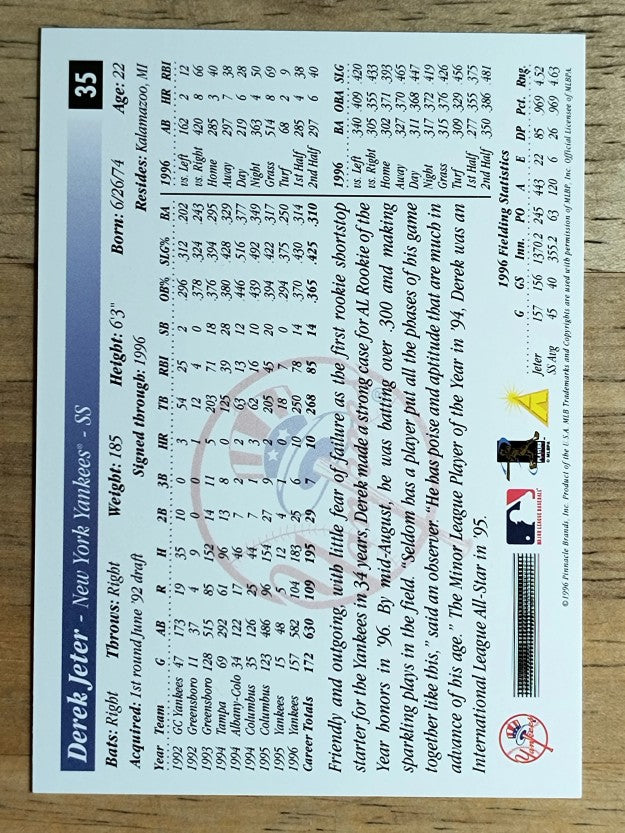 35
Derek Jeter - New York Yankees® - SS
Bats: Right Throws: Right Weight: 185 Height: 6'3" Born: 6/26/74 Age: 22
Acquired: 1st round June '92 draft Signed through: 1996 Resides: Kalamazoo, MI
Year Team G AB R H 2B 3B HR TB RBI SB OB% SLG% BA
1992 GC Yankees 47 173 19 35 10 0 3 54 25 2 .296 .312 .202
1992 Greensboro 11 37 4 9 0 0 1 12 4 0 .378 .324 .243
1993 Greensboro 128 515 85 152 14 11 5 203 71 18 .376 .394 .295
1994 Tampa 69 292 61 96 13 8 0 125 39 28 .380 .428 .329
1994 Albany-Colo 34 122 17 46 7 2 2 63 13 12 .446 .516 .377
1994 Columbus 35 126 25 44 7 1 3 62 16 10 .439 .492 .349
1995 Columbus 123 486 96 154 27 9 2 205 45 20 .394 .422 .317
1995 Yankees 15 48 5 12 4 1 0 18 7 0 .294 .375 .250
1996 Yankees 157 582 104 183 25 6 10 250 78 14 .370 .430 .314
Career Totals 172 630 109 195 29 7 10 268 85 14 .365 .425 .310
1996 AB HR RBI
vs. Left 162 2 12
vs. Right 420 8 66
Home 285 3 40
Away 297 7 38
Day 219 6 28
Night 363 4 50
Grass 514 8 69
Turf 68 2 9
1st Half 285 4 38
2nd Half 297 6 40
Friendly and outgoing, with little fear of failure as the first rookie shortstop
starter for the Yankees in 34 years, Derek made a strong case for AL Rookie of the
Year honors in '96. By mid-August, he was batting over .300 and making
sparkling plays in the field. "Seldom has a player put all the phases of his game
together like this," said an observer. "He has poise and aptitude that are much in
advance of his age." The Minor League Player of the Year in '94, Derek was an
International League All-Star in '95.
1996 BA OBA SLG
vs. Left .340 .409 .420
vs. Right .305 .355 .433
Home .302 .371 .393
Away .327 .370 .465
Day .311 .368 .447
Night .317 .372 .419
Grass .315 .376 .426
Turf .309 .329 .456
1st Half .277 .355 .375
2nd Half .350 .386 .481
1996 Fielding Statistics
G GS Inn. PO A E DP Pct. Rng.
Jeter 157 156 1370.2 245 443 22 85 .969 4.52
SS Avg 45 40 355.2 63 120 6 26 .969 4.63
Yankees
MAJOR LEAGUE BASEBALL
PLAYERS
© MLBPA
©1996 Pinnacle Brands, Inc. Product of the U.S.A. MLB Trademarks and Copyrights are used with permission of MLBP, Inc. Official Licensee of MLBPA.